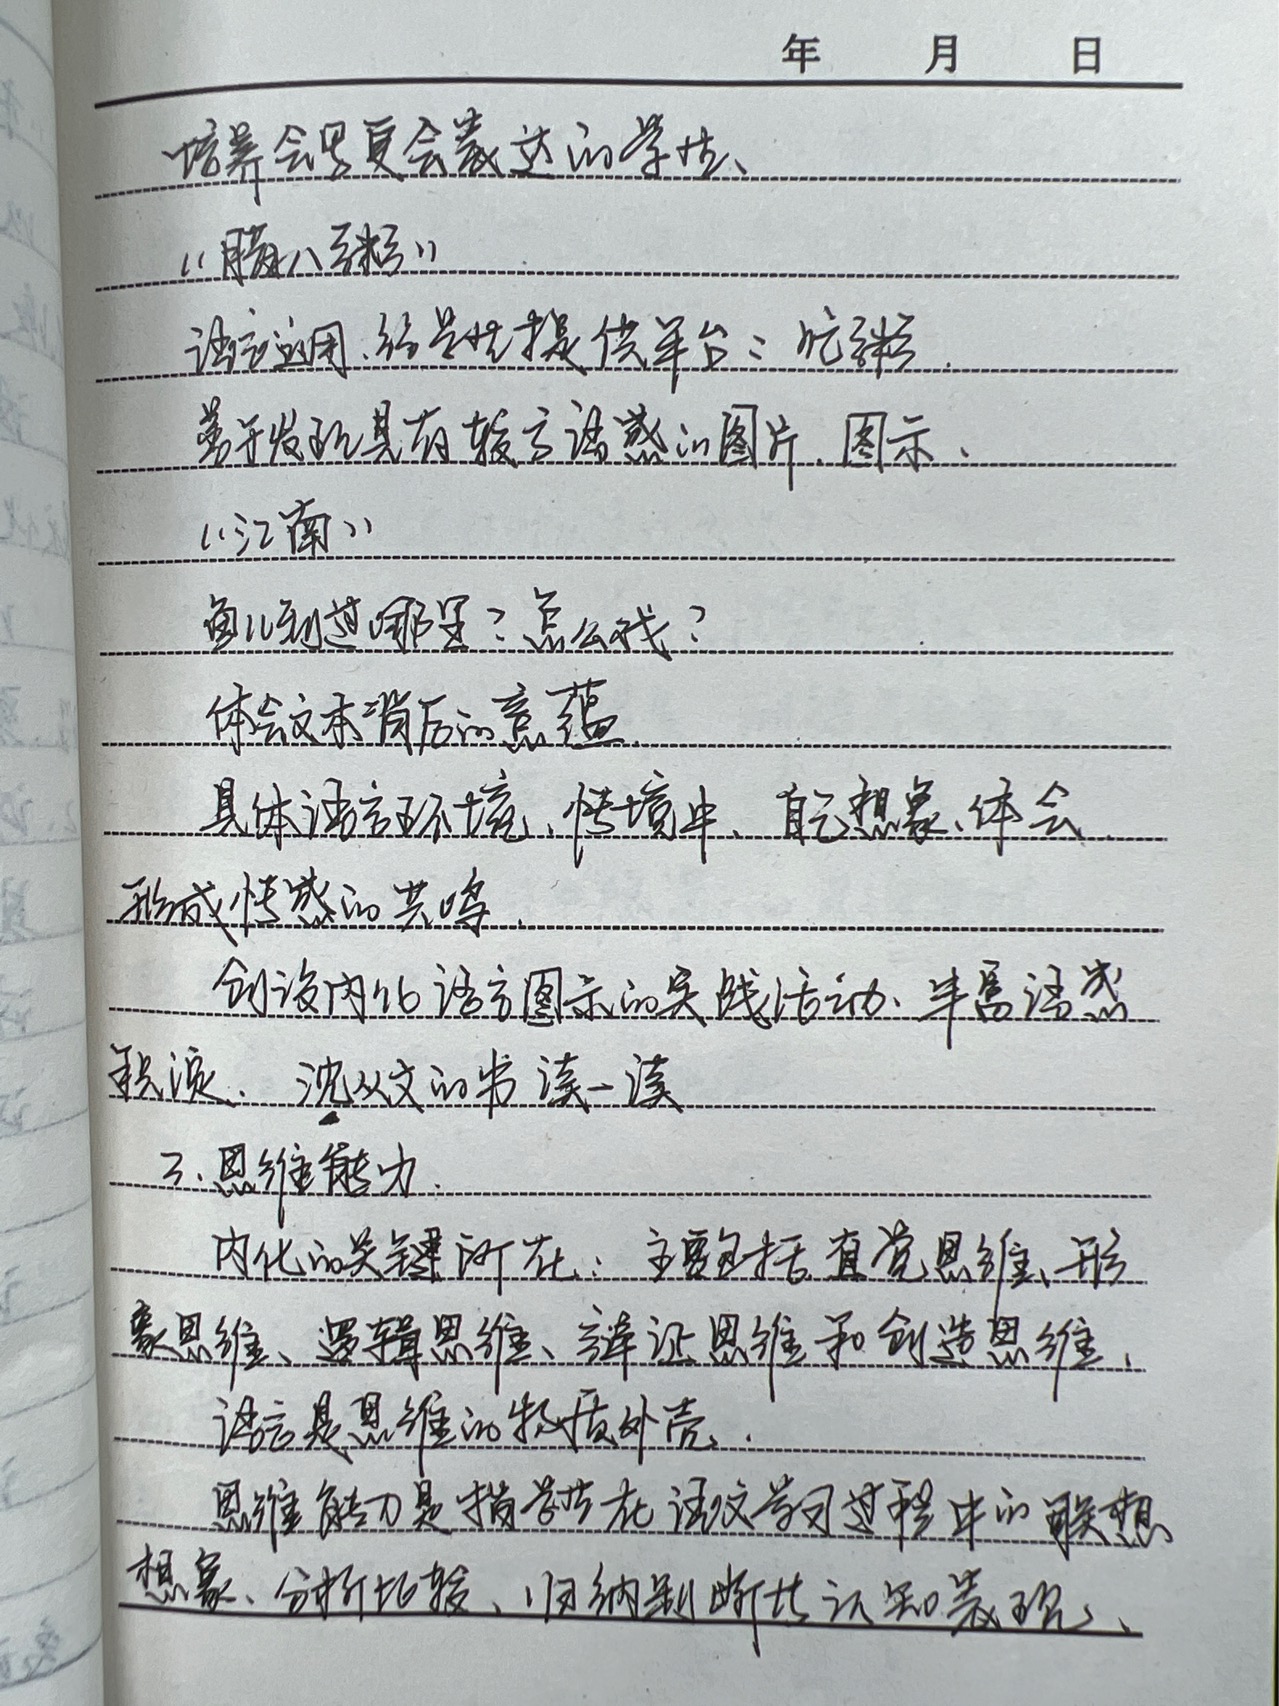 年 月 日
培养会思更会表达的学生、
“腊八粥”
语言运用、给学生提供平台：吃粥.
善于发现具有较高语感的图片、图示、
“江南”
鱼儿到过哪里？怎么戏？
体会文本背后的意蕴.
具体语言环境、情境中、自己想象、体会.
形成情感的共鸣.
创设内化语言图示的实践活动、丰富语感
积淀. 沈从文的书 读一读
3.思维能力.
内化的关键所在：主要包括直觉思维、形
象思维、逻辑思维、辩证思维和创造思维.
语言是思维的物质外壳.
思维能力是指学生在语文学习过程中的联想
想象、分析比较、归纳判断 认知表现、